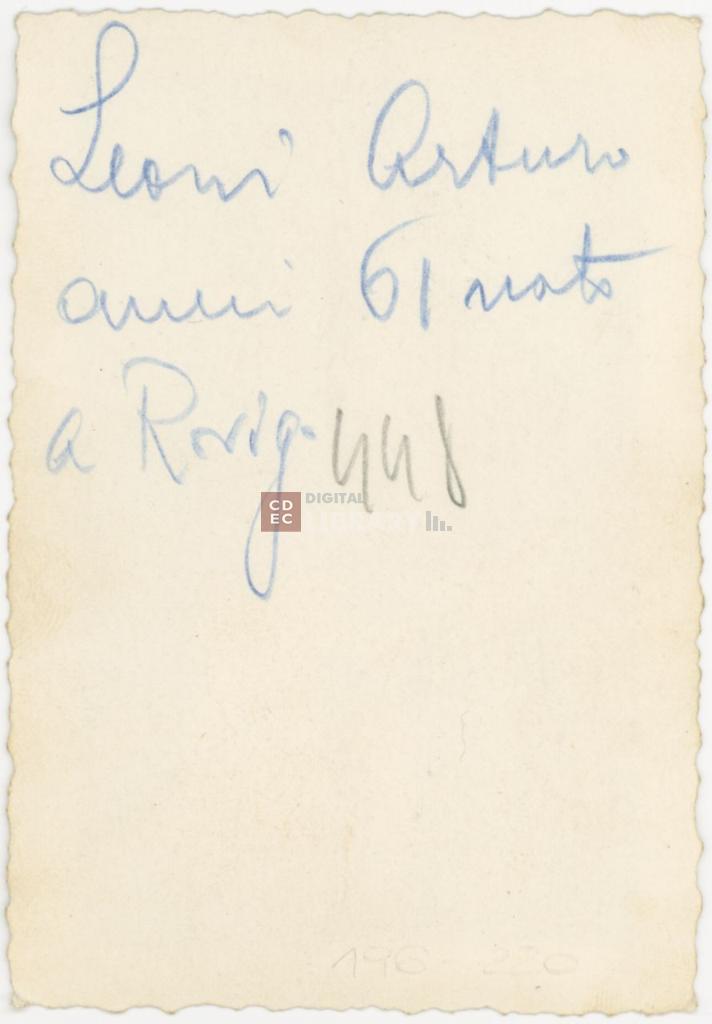 Leoni Arturo
anni 61 nato
a Rovigo 448
CD
EC
DIGITAL
LIBRARY
196-220